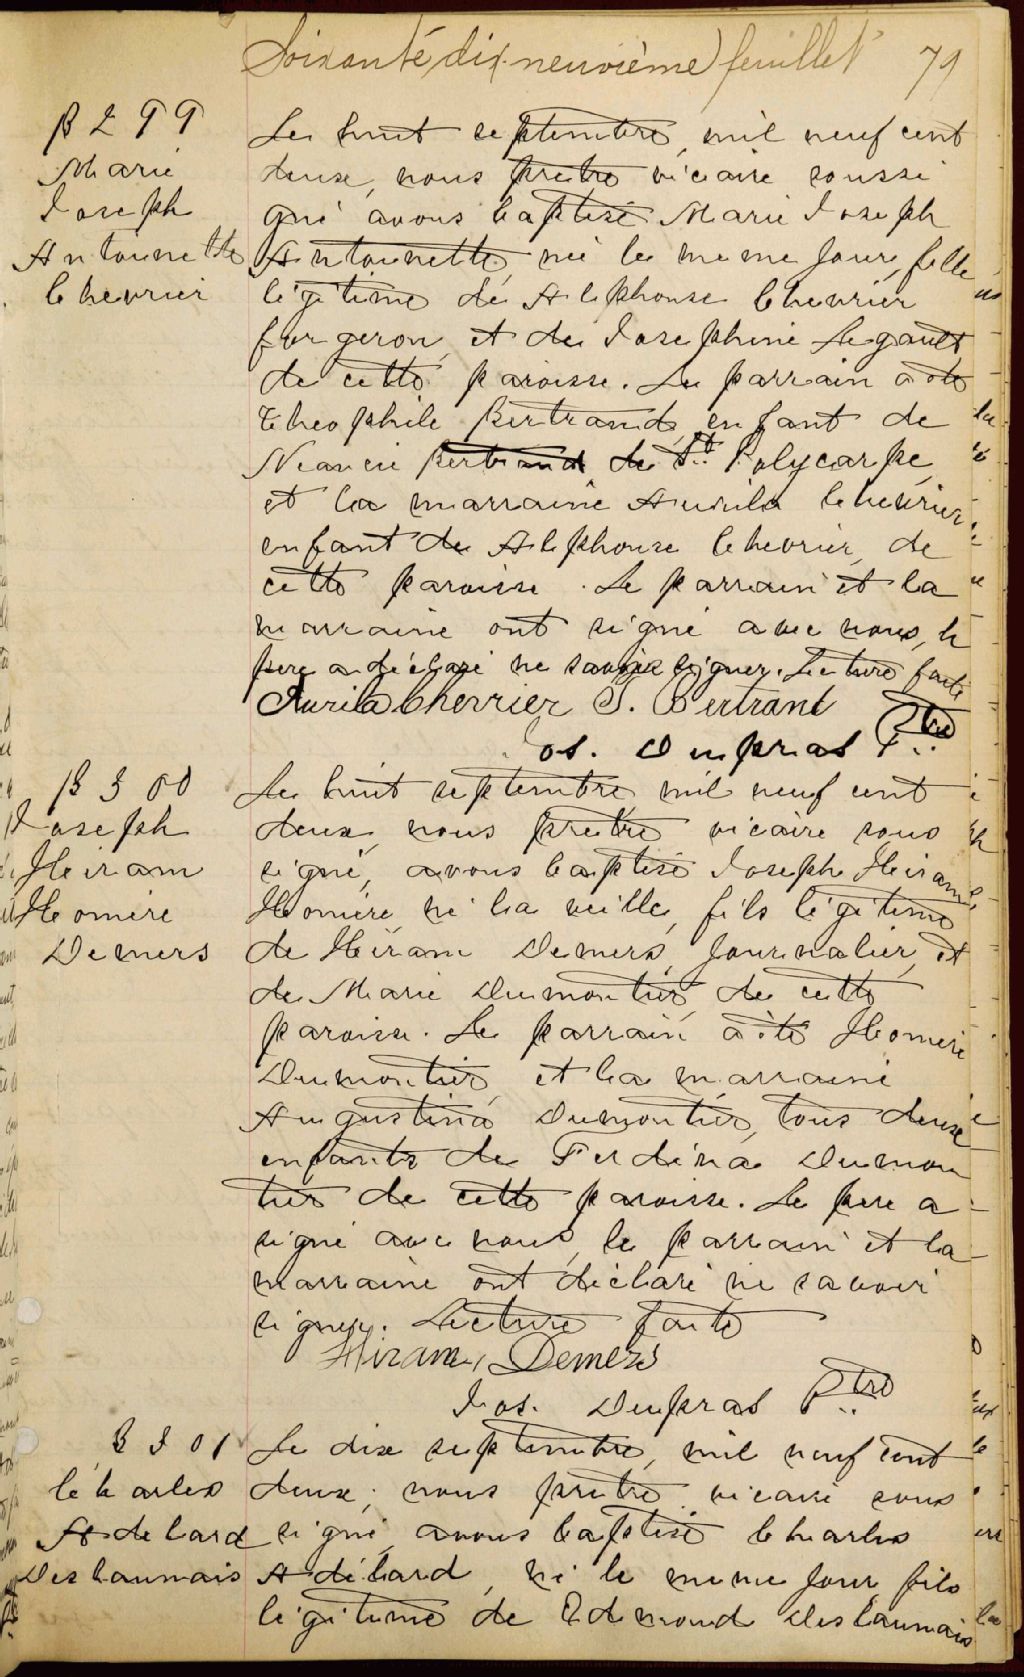 Soixante dix neuvième feuillet 79
B 299
Marie
Joseph
Antoinette
Chevrier
Le huit septembre, mil neuf cent
deux, nous prêtre vicaire soussi
gné avons baptisé Marie Joseph
Antoinette, née le même jour, fille
légitime de Alphonse Chevrier
forgeron, et de Josephine Legault
de cette paroisse. Le parrain a été
Théophile Bertrand, enfant de
de St Polycarpe,
et la marraine Aurila Chevrier
enfant de Alphonse Chevrier, de
cette paroisse. Le parrain et la
marraine ont signé avec nous, le
père a déclaré ne savoir signer. Lecture faite
Aurila Cherrier T. Bertrand
Jos. Dupras Ptre
B 300
Joseph
Hiram
Homère
Demers
Le huit septembre, mil neuf cent
deux, nous prêtre vicaire sous
signé, avons baptisé Joseph Hiram
Homère né la veille, fils légitime
de Hiram Demers, journalier, et
de Marie Dumontier de cette
paroisse. Le parrain a été Homère
Dumontier et la marraine
Augustina Dumontier, tous deux
enfants de Ferdina Dumon
tier de cette paroisse. Le père a
signé avec nous, le parrain et la
marraine ont déclaré ne savoir
signer. Lecture faite
Hiram Demers
Jos. Dupras Ptre
B 301
Charles
Adelard
Deslaunais
Le dix septembre, mil neuf cent
deux, nous prêtre vicaire sous
signé, avons baptisé Charles
Adélard, né le même jour, fils
légitime de Edmond Deslaunais